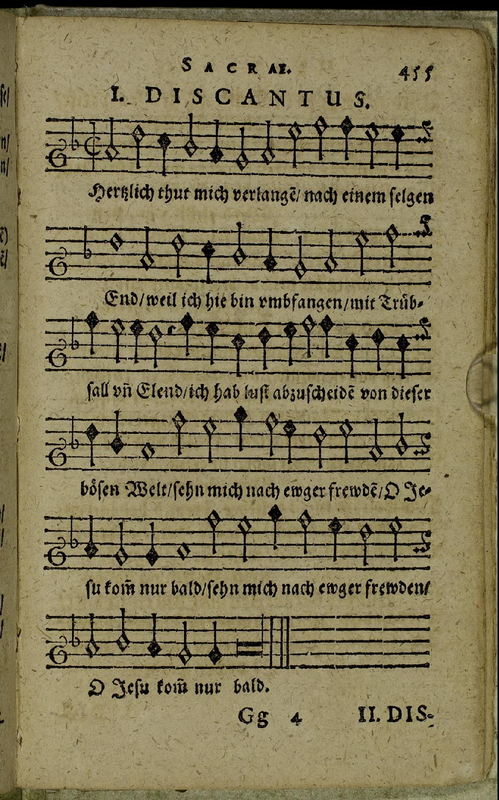 SACRAE. 455
I. DISCANTUS.
Hertzlich thut mich verlangẽ/ nach einem selgen
End/weil ich hie bin vmbfangen/mit Trüb-
sall vñ Elend/ich hab lust abzuscheidẽ von dieser
bösen Welt/sehn mich nach ewger frewdẽ/O Je-
su kom̃ nur bald/sehn mich nach ewger frewden/
O Jesu kom̃ nur bald.
Gg 4 II. DIS-